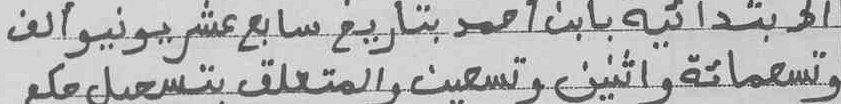 الابتدائية بابن أحمد بتاريخ سابع عشر يونيو ألف
وتسعمائة واثنين وتسعين والمتعلق بتسجيل حكم